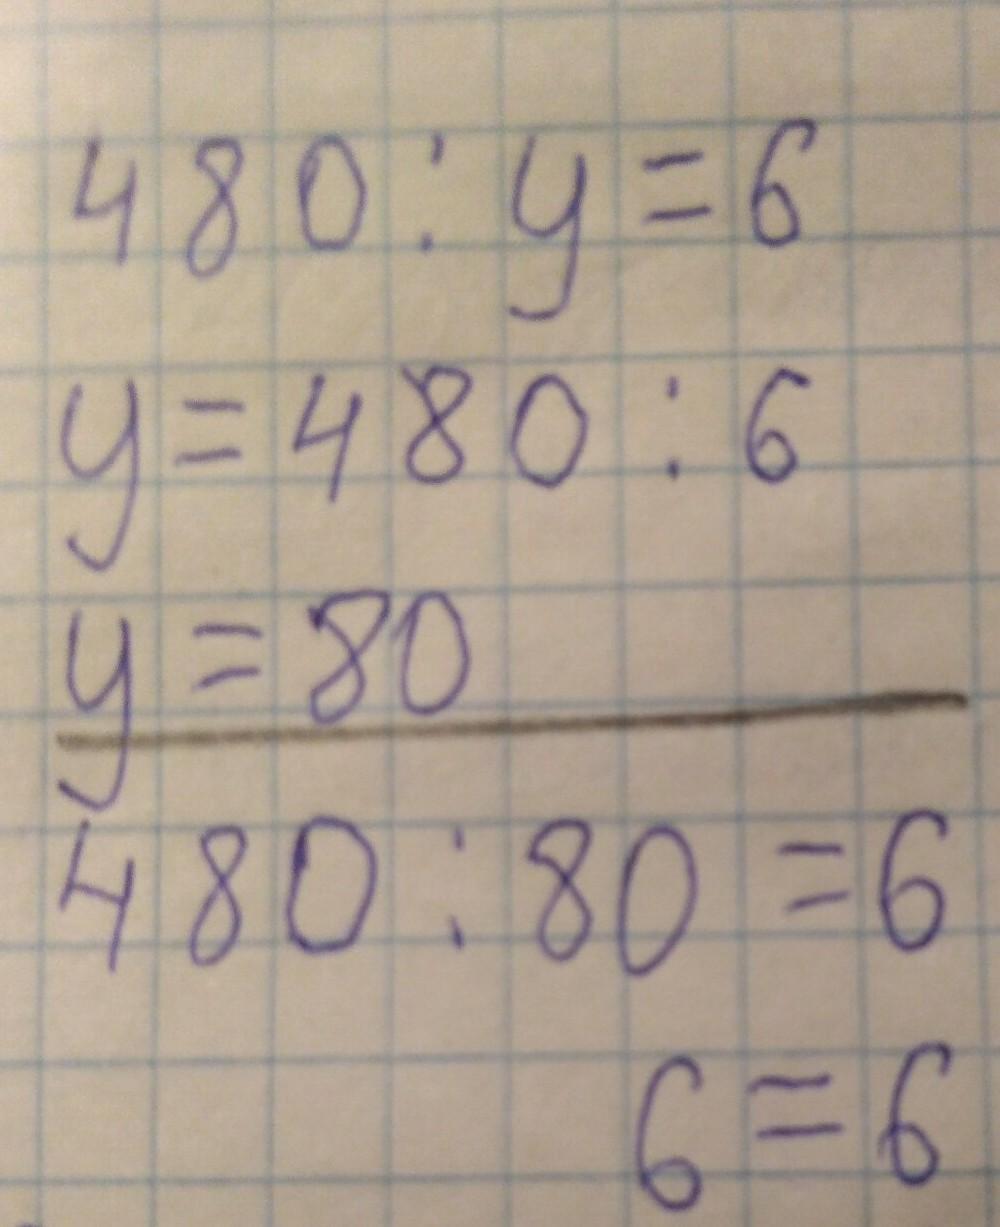 480:y=6
y=480:6
y=80
480:80=6
6=6